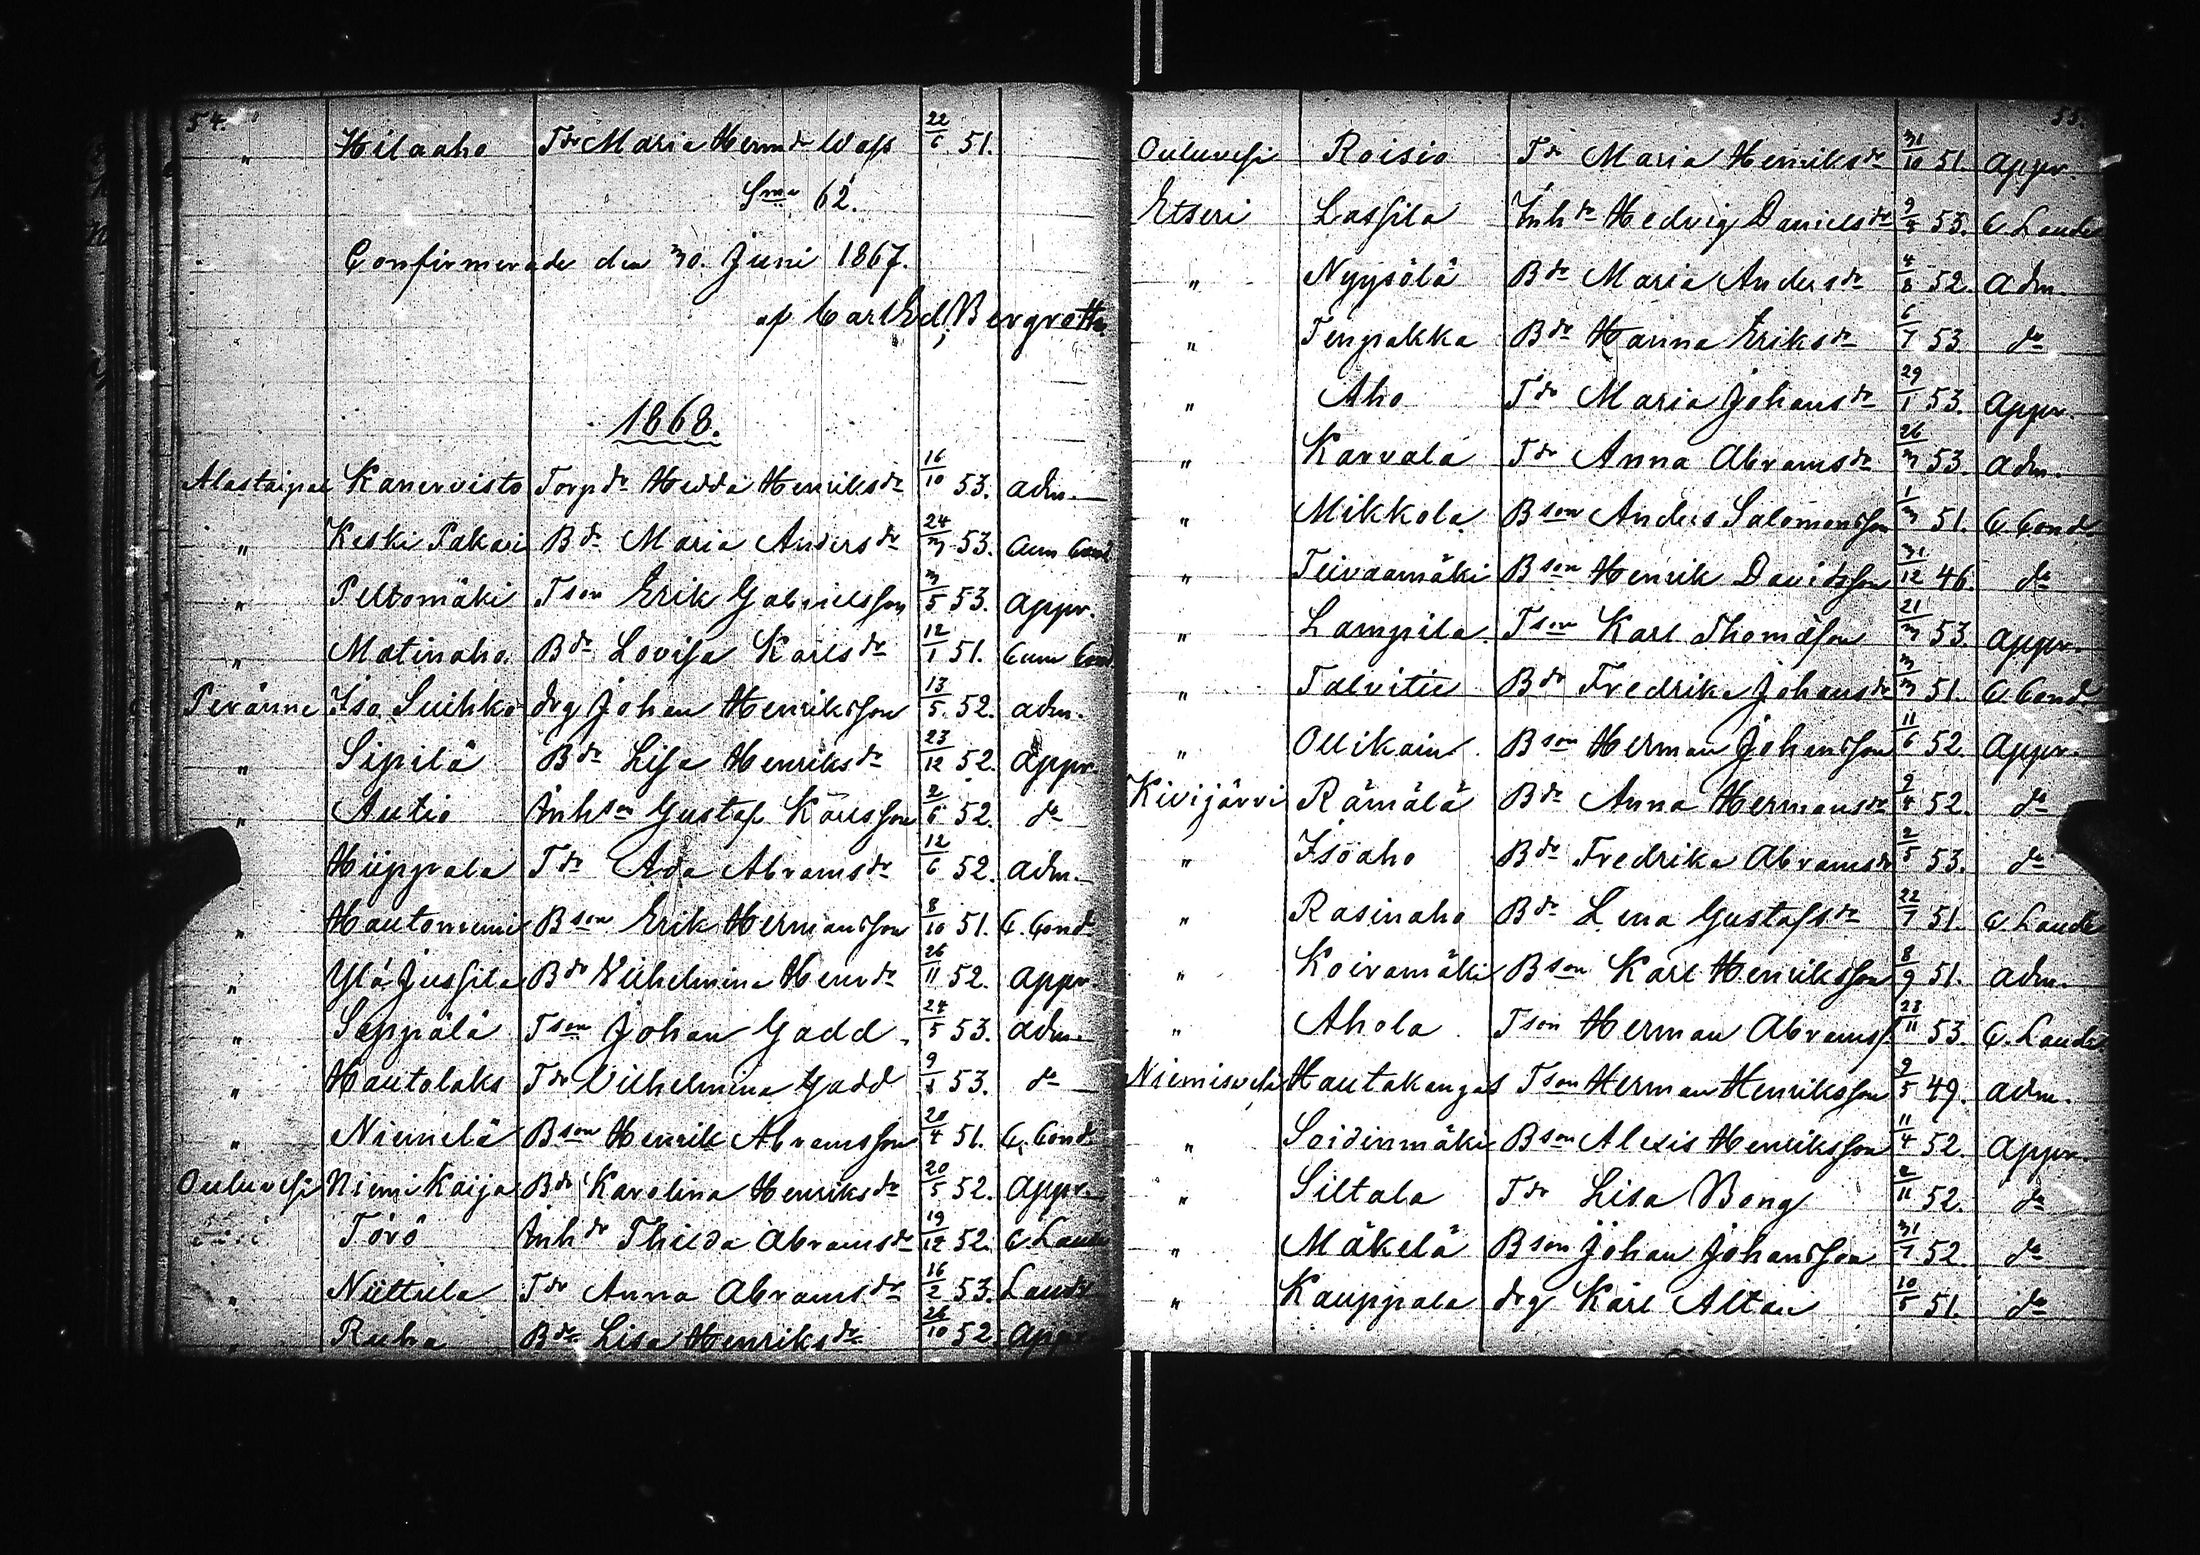 54.
" Hilaaho Tdr Maria Hermdr Wass 22/6 51.
Sma 62.
Confirmerade den 30. Juni 1867.
af Carl Ed. Bergroth.
1868.
Alastaipal Kanervisto Torpdr Hedda Henriksdr 16/10 53. adm.
" Keski Pakari Bdr Maria Andersdr 24/3 53. Cum Cond
" Peltomäki Tson Erik Gabrielsson 3/5 53. appr.
" Matinaho Bdr Lovisa Karlsdr 12/1 51. Cum Cond
Peränne Iso Suihko drg Johan Henriksson 13/5. 52. adm.
" Sipilä Bdr Lisa Henriksdr 23/12 52. appr.
" Autio Inhson Gustaf Karlsson 2/6 52. do
Hiippala Tdr Ada Abramsdr 12/6 52. adm.
" Hautoniemi Bson Erik Hermansson 8/10 51. C. Cond
" Ylä Jussila Bdr Vilhelmina Henrdr 26/11 52. appr.
" Seppälä Tson Johan Gadd 24/5 53. adm.
" Hautolaks Tdr Vilhelmina Gadd 53. do
" Niemelä Bson Henrik Abramsson 20/4 51. C. Cond
Ouluvesi Niemi Kaija Bdr Karolina Henriksdr 20/5 52. appr.
Törö Inhdr Thilda Abramsdr 19/12 52. C Laude
" Niittula Tdr Anna Abramsdr 16/2 53. Laude
" Ruha Bdr Lisa Henriksdr 26/10 52. appr
55.
Ouluvesi Roisio Tdr Maria Henriksdr 31/10 51. appr.
Etseri Lassila Inhdr Hedvig Danielsdr 53. C. Laude
" Nyysölä Bdr Maria Andersdr 4/8 52. adm.
" Tenpakka Bdr Hanna Eriksdr 6/7 53. do
" Aho Tdr Maria Johansdr 29/1 53. appr.
" Karvala Tdr Anna Abramsdr 26/3 53. adm.
" Mikkola Bson Anders Salomonsson 1/3 51. C. Cond.
" Teivaamäki Bson Henrik Davidsson 31/12 46. do
" Lampila Tson Karl Thomasson 21/3 53. appr.
" Talvitie Bdr Fredrika Johansdr 3/3 51. C. Cond
" Ollikain. Bson Herman Johansson 11/6 52. appr.
Kivijärvi Rämälä Bdr Anna Hermansdr 9/4 52. do
" Isoaho Bdr Fredrika Abramsdr 2/5 53. do
" Rasinaho Bdr Lena Gustafsdr 22/7 51. C. Laude
" Koiramäki Bson Karl Henriksson 8/9 51. adm.
" Ahola Tson Herman Abramss. 23/11 53. C. Laude
Niemisvesi Hautakangas Tson Herman Henriksson 9/5 49. adm.
" Soidinmäki Bson Alexis Henriksson 11/4 52. appr.
" Siltala Tdr Lisa Bong 2/11 52. do
" Mäkelä Bson Johan Johansson 31/7 52. do
" Kauppala drg Karl Altan 10/5 51. do